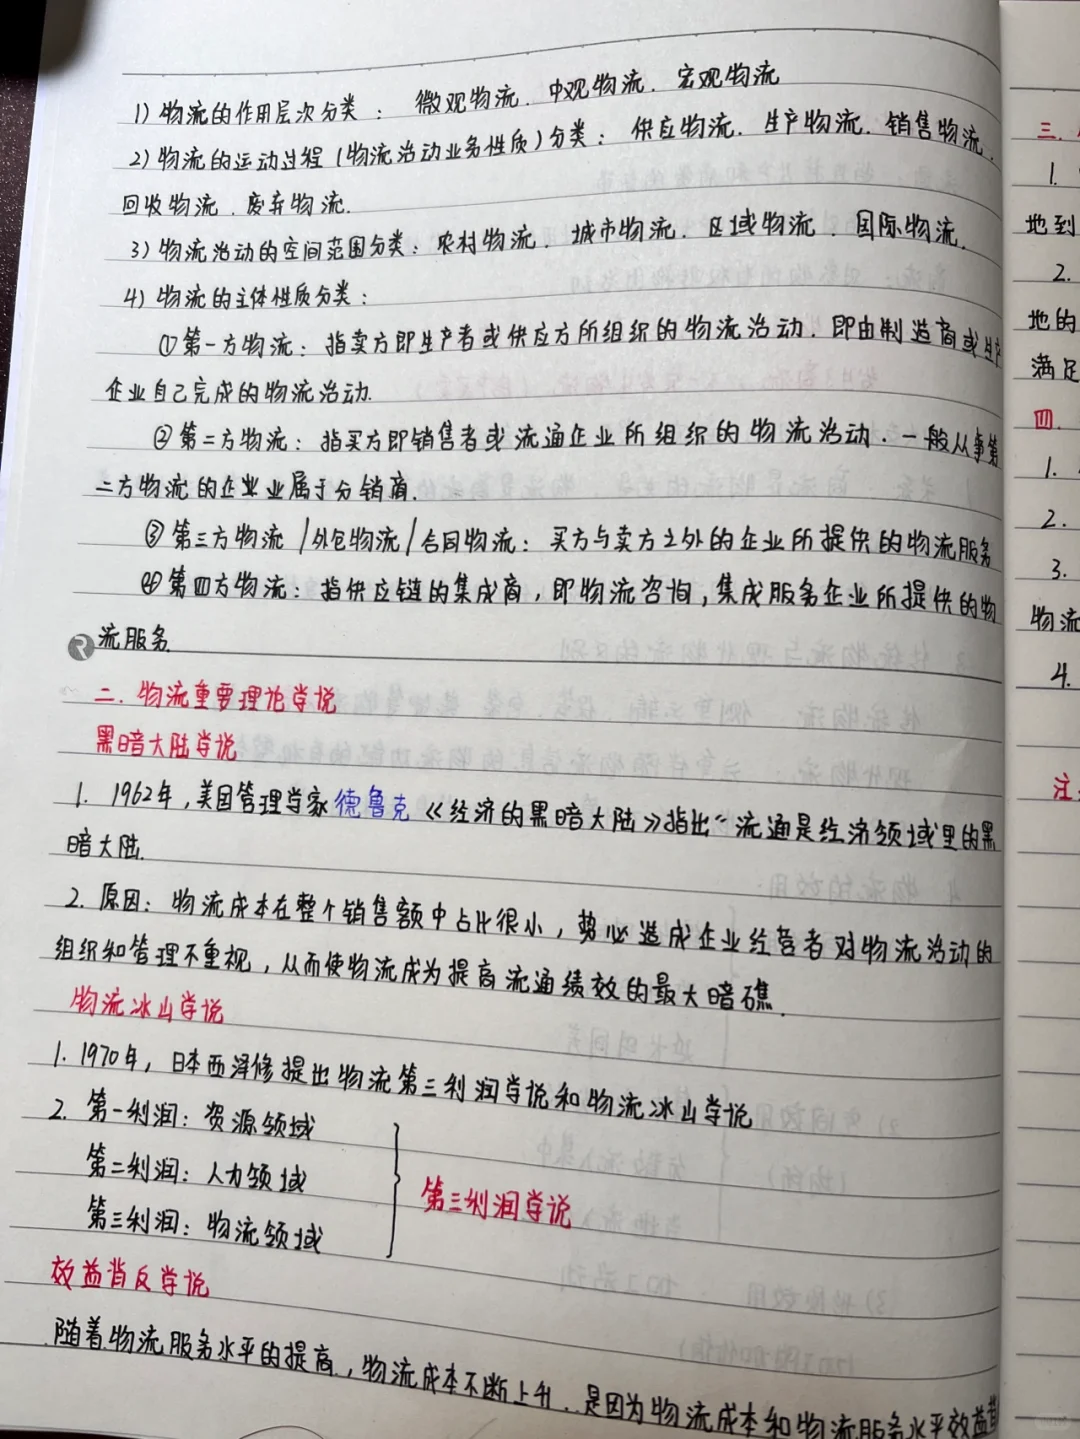 1) 物流的作用层次分类： 微观物流．中观物流．宏观物流
2) 物流的运动过程（物流活动业务性质）分类：供应物流．生产物流．销售物流．
回收物流．废弃物流．
3) 物流活动的空间范围分类：农村物流．城市物流．区域物流．国际物流．
4) 物流的主体性质分类：
①第一方物流：指卖方即生产者或供应方所组织的物流活动．即由制造商或生产
企业自己完成的物流活动．
②第二方物流：指买方即销售者或流通企业所组织的物流活动．一般从事第
二方物流的企业业属于分销商．
③第三方物流/外包物流/合同物流：买方与卖方之外的企业所提供的物流服务
④第四方物流：指供应链的集成商，即物流咨询，集成服务企业所提供的物
流服务
二．物流重要理论学说
黑暗大陆学说
1. 1962年，美国管理学家德鲁克《经济的黑暗大陆》指出“流通是经济领域里的黑
暗大陆．
2. 原因：物流成本在整个销售额中占比很小，势必造成企业经营者对物流活动的
组织和管理不重视，从而使物流成为提高流通绩效的最大暗礁．
物流冰山学说
1. 1970年，日本西泽修提出物流第三利润学说和物流冰山学说
2. 第一利润：资源领域
第二利润：人力领域
第三利润：物流领域
第三利润学说
效益背反学说
随着物流服务水平的提高，物流成本不断上升．是因为物流成本和物流服务水平效益背
三．
1.
地到
2.
地的
满足
四．
1.
2.
3.
物流
4.
注：